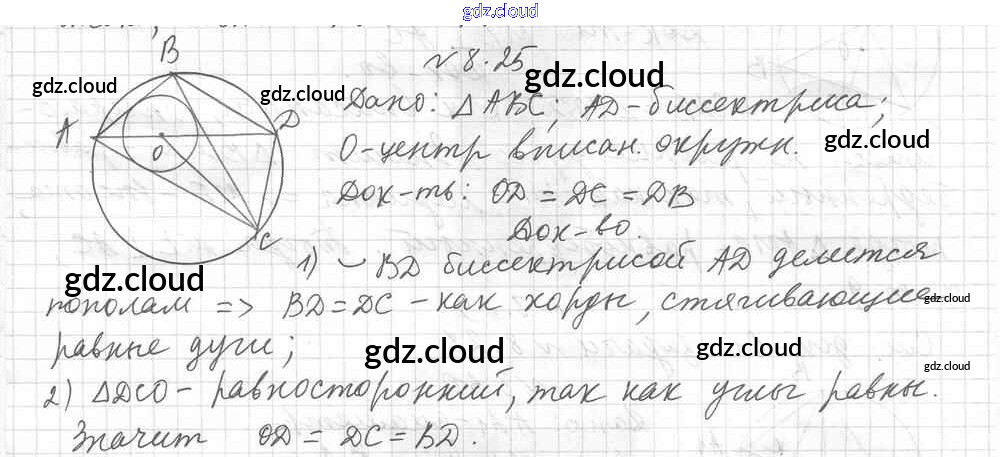 gdz.cloud
№ 8.25
gdz.cloud
gdz.cloud
gdz.cloud
B
A
D
O
C
Дано: △ABC; AD-биссектриса;
O-центр вписан. окружн.
gdz.cloud
Док-ть: OD = DC = DB
Док-во.
1) ◡ BD биссектрисой AD делется
gdz.cloud
пополам => BD = DC - как хорды, стягивающие
gdz.cloud
равные дуги;
gdz.cloud
gdz.cloud
2) △DCO - равносторонний, так как углы равны.
gdz.cloud
Значит OD = DC = BD.